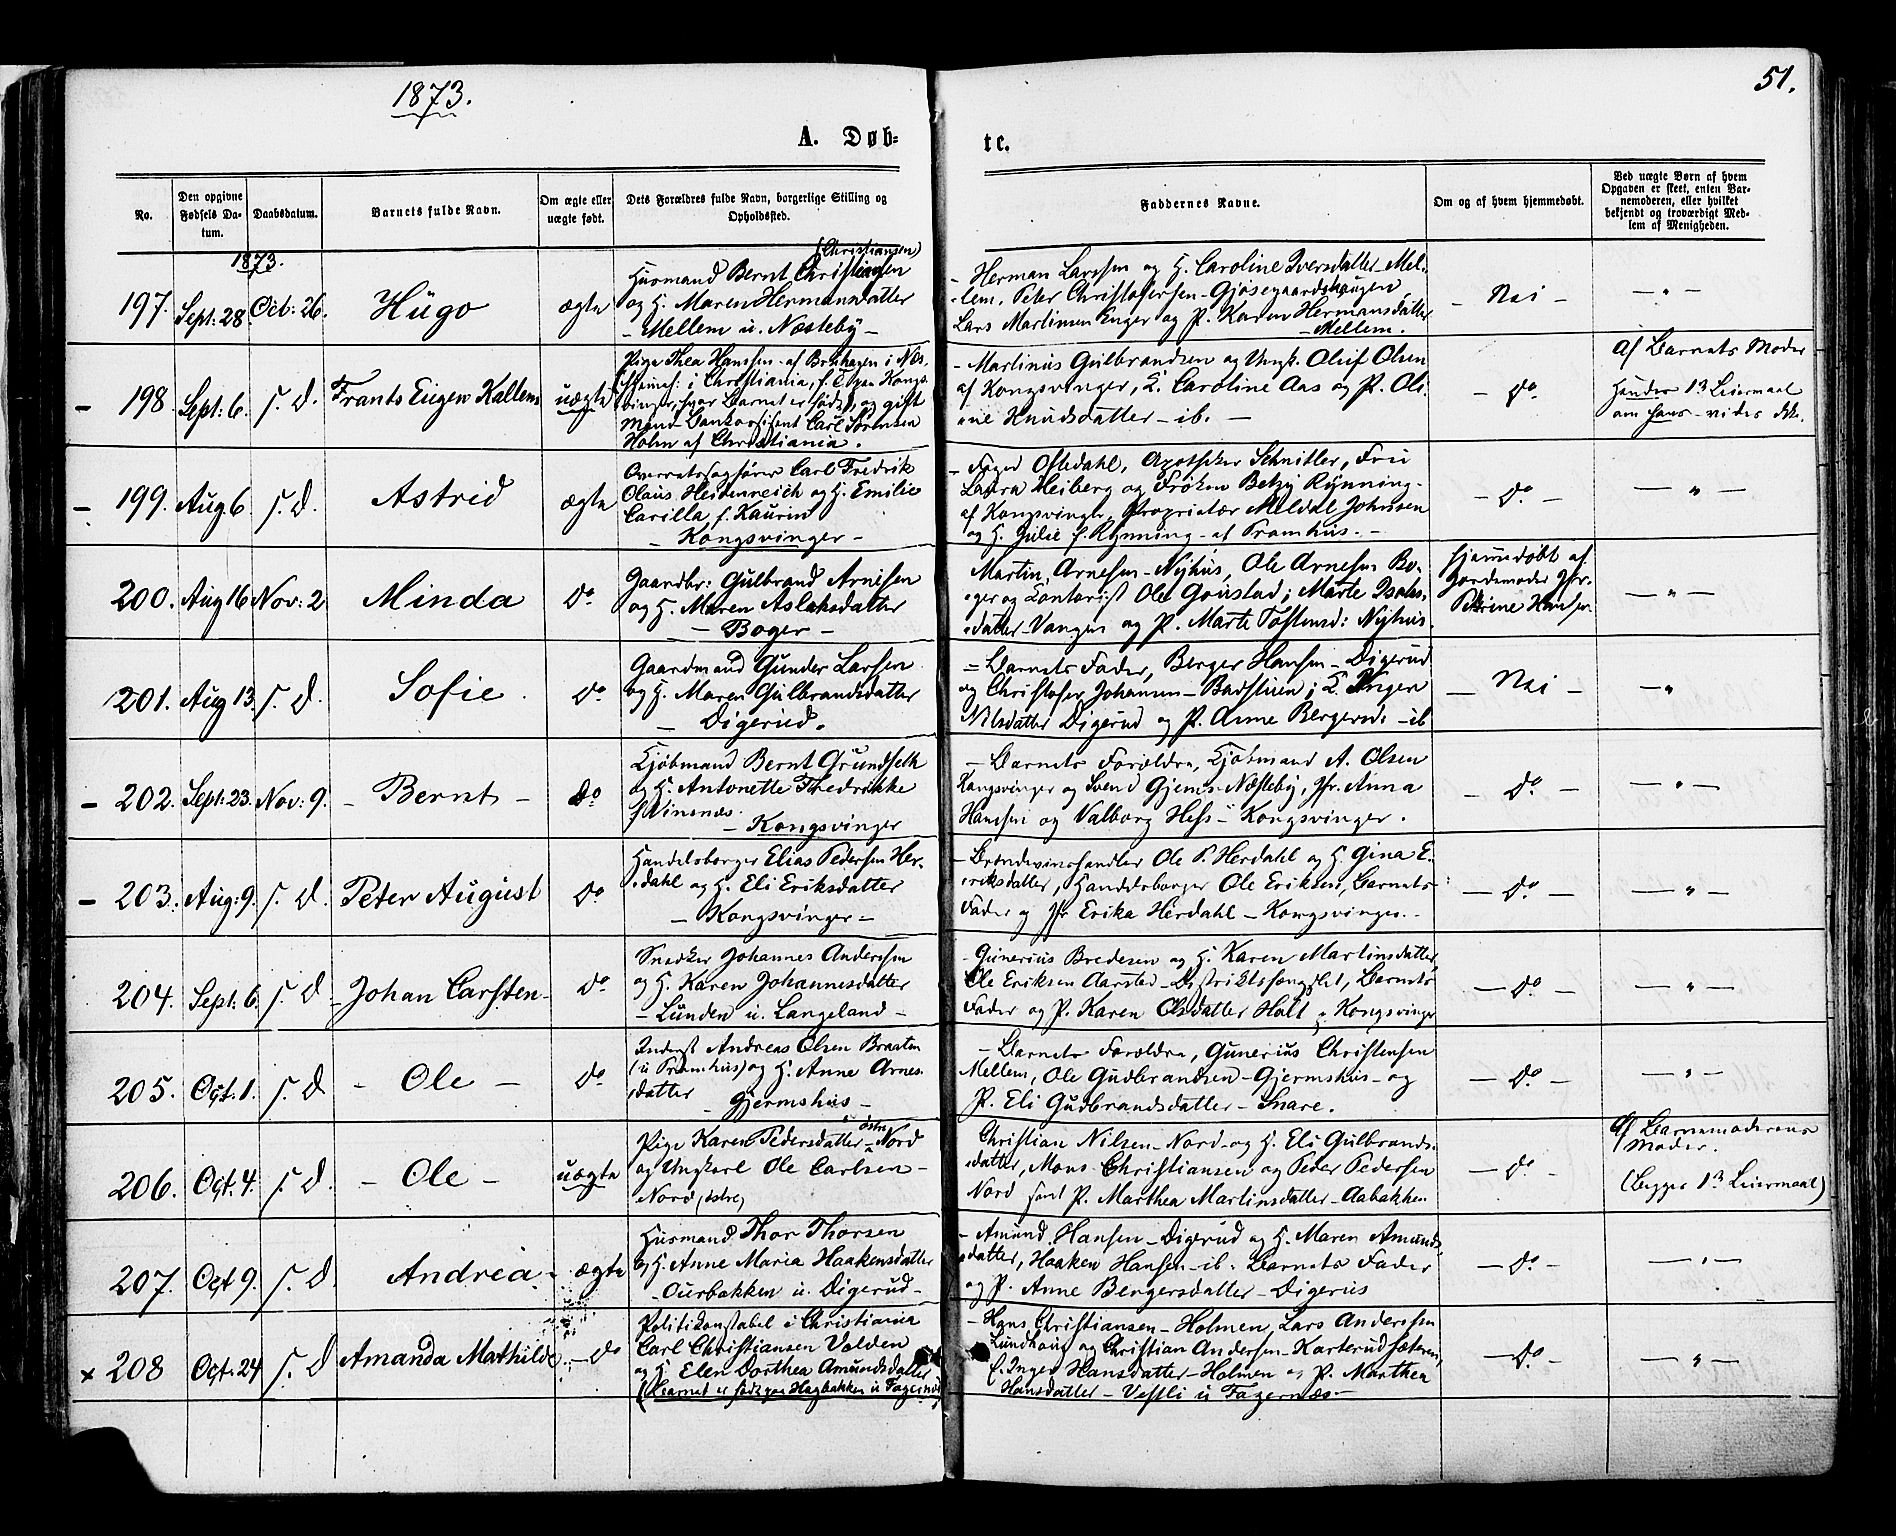 1873.
51.
A. Døb=
te.
No.
Den opgivne
Fødsels Da-
tum.
Daabsdatum.
Barnets fulde Navn.
Om ægte eller
uægte født.
Dets Forældres fulde Navn, borgerlige Stilling og
Opholdssted.
Faddernes Navne.
Om og af hvem hjemmedøbt.
Ved uægte Børn af hvem
Opgaven er skeet, enten Bar-
nemoderen, eller hvilket
bekjendt og troværdigt Med-
lem af Menigheden.
1873.
197. Sept: 28. Octb: 26. Hugo ægte
(Christiansen)
Husmand Bernt Christiansen
og H. Maren Hermansdatter
- Mellem u. Næsteby -
- Herman Larssen og H. Caroline Iversdatter - Mel-
lem, Peter Christofersen - Gjøsegaardshaugen
Lars Martinsen Enger og P. Karen Hermansdatter
- Mellem.
- Nei -
- " -
- 198. Sept: 6. s. d. Frants Eugen Kallem uægte
Pige Thea Hanssen - af
i Christiania, f.
hvor Barnet er født), og gift
Mand Bankassistent Carl Sørensen
Holm af Christiania.
- Martinus Gulbrandsen og Ungk. Oluf Olsen
af Kongsvinger, E. Caroline Aas og P. Oli-
ne Knudsdatter - ib. -
- do -
Af Barnets Moder
Hendes 1ste Leiermaal
om hans - vides ikke.
- 199. Aug 6 s. d. Astrid ægte
Overretssagfører Carl Fredrik
Olaus Heidenreich og H. Emilie
Carilla, f. Kaurin
- Kongsvinger -
- Foged Oftedahl, Apotheker Schnitler, Fru
Laura Heiberg og Frøken Betzy Rynning -
af Kongsvinger, Proprietær Meldal Johnsen
og H. Julie f. Rynning - af Tramhus. -
- do -
- " -
200. Aug 16 Nov: 2 Minda do
Gaardbr: Gulbrand Arnesen
og H. Maren Aslaksdatter
- Boger -
Martin Arnesen - Nyhus, Ole Arnesen Bo-
ger og Contorist Ole Gonstad; Marte Isaks-
datter - Vangen og P. Marte Tostensd: Nyhus.
Hjemmedøbt af
Jordemoder Jfr.
Petrine Hansen
- " -
201. Aug 13 s. d. Sofie. do
Gaardmand Gunder Larsen
og H. Maren Gulbrandsdatter
- Digerud.
= Barnets Fader, Berger Hansen - Digerud
og Christofer Johansen - Badstuen; E. Inger
Nilsdatter Digerud og P. Anne Bergersd: - ib
- Nei -
- "
- 202. Sept: 23. Nov: 9. - Bernt - do
Kjøbmand Bernt Grundseth
og H. Antonette Fredrikke
f. Vinsnæs.
- Kongsvinger
- Barnets Forældre, Kjøbmand A. Olsen
Kongsvinger og Svend Gjems - Næsteby, Jfr. Anna
Hanssen og Valborg Hess - Kongsvinger.
- do -
- " -
- 203. Aug: 9. s. d. Peter August do
Handelsborger Elias Pedersen Her-
dahl og H. Eli Eriksdatter
- Kongsvinger -
- Brændevinshandler Ole P. Herdahl og H. Gina E-
riksdatter, Handelsborger Ole Eriksen, Barnets
Fader og Jfr Erika Herdahl - Kongsvinger. -
- do -
- " -
204. Sept: 6. s. d - Johan Carsten - do
Snedker Johannes Anderssen
og H. Karen Johannesdatter
- Lunden u. Langeland -
- Gunerius Bredesen og H. Karen Martinsdatter,
Ole Eriksen Aarsted - Distriktsfængslet, Barnets
Fader og P. Karen Olsdatter Holt - Kongsvinger
- do -
- " -
205. Oct. 1. s. d - Ole - do
Inderst Andreas Olsen Braaten
(u Tramhus) og H. Anne Arnes-
datter - Gjermshus -
- Barnets Forældre, Gunerius Christensen
Mellem, Ole Gudbrandsen - Gjermshus - og
P. Eli Gudbrandsdatter - Snare.
- do -
- " -
206. Oct. 4. s. d. - Ole - uægte
østre
Pige Karen Pedersdatter - Nord
og Ungkarl Ole Carlsen -
Nord (østre)
Christian Nilsen - Nord - og H. Eli Gulbrands-
datter, Mons Christiansen og Peder Pedersen
Nord samt P. Marthea Martinsdatter - Aabakken
- do -
Af Barnemoderens
Moder.
(Begges 1ste Leiermaal)
207. Oct 9. s. d Andrea - ægte
Husmand Thor Thorsen
og H. Anne Maria Haakensdatter
- Ourbakken u. Digerud -
- Amund Hansen - Digerud og H. Maren Amunds-
datter, Haaken Hansen - ib. Barnets Fader
og P. Anne Bergersdatter - Digerud
- do -
- " -
x 208 Oct: 24 s. d Amanda Mathilde - do
Politikonstabel i Christiania
Carl Christiansen Volden
og H. Elen Dorthea Amundsdatter
(Barnet er født paa Hagbakken u Fagernæs)
- Hans Christiansen - Holmen, Lars Anderssen
Lundhaug og Christian Andersen - Karterudsæteren,
E. Inger Hansdatter - Holmen og P. Marthea
Hansdatter - Vestli u Fagernæs -
- do -
- " -